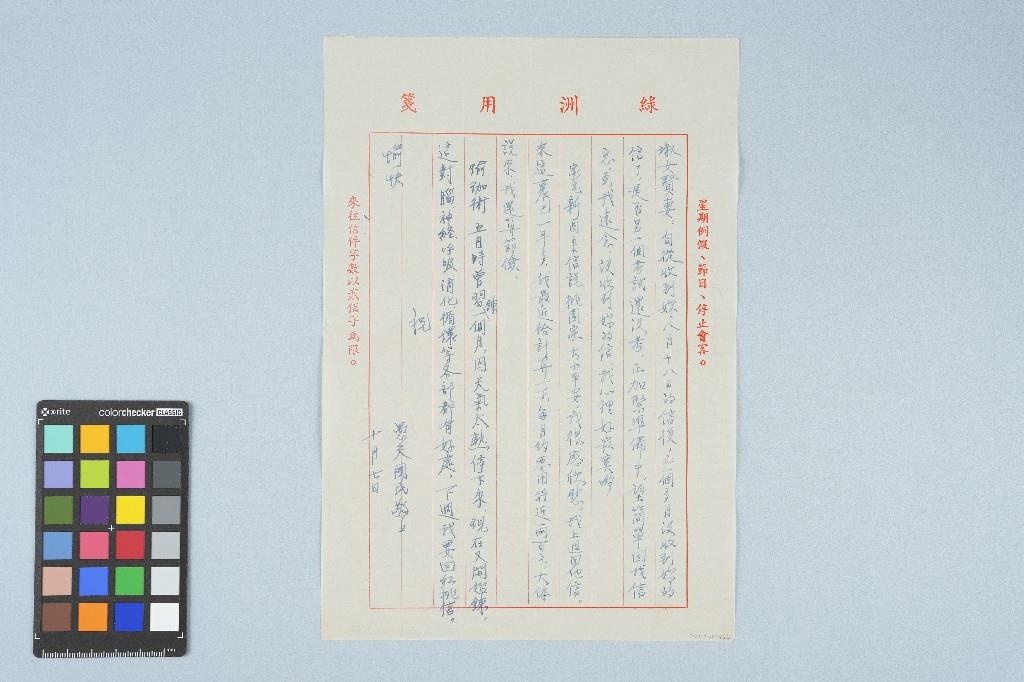 綠洲用箋
星期例假、節日、停止會客。
淑女賢妻：自從收到妳八月十八日的信後，已一個多月沒收到妳的
信了，是否另一個考試還沒考，正加緊準備中，請簡單回我信
忘至我遠念，沒收到妳的信我心裡好寂寞喲。
榮兄新回來信說桃園家大小平安，我很感欣慰。我上週回他信。
來這裏已一年多，我最近給計算一下，每月約要用將近兩百元，大体
說來我還算節儉。
瑜珈術五月時曾習練一個月，因天氣太熱停下來，現在又開始練，
這對腦神経、呼吸、消化、循環等各部都有好處，下週我要回紅桃信。
祝
愉快
愚夫國民敬上
十月七日
來往信件字數以貳佰字為限。
x-rite
colorchecker CLASSIC